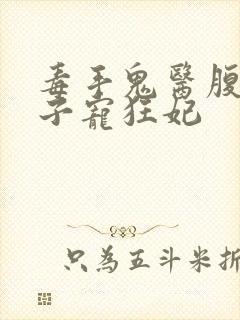 毒手鬼醫腹
子寵狂妃
只為五斗米折